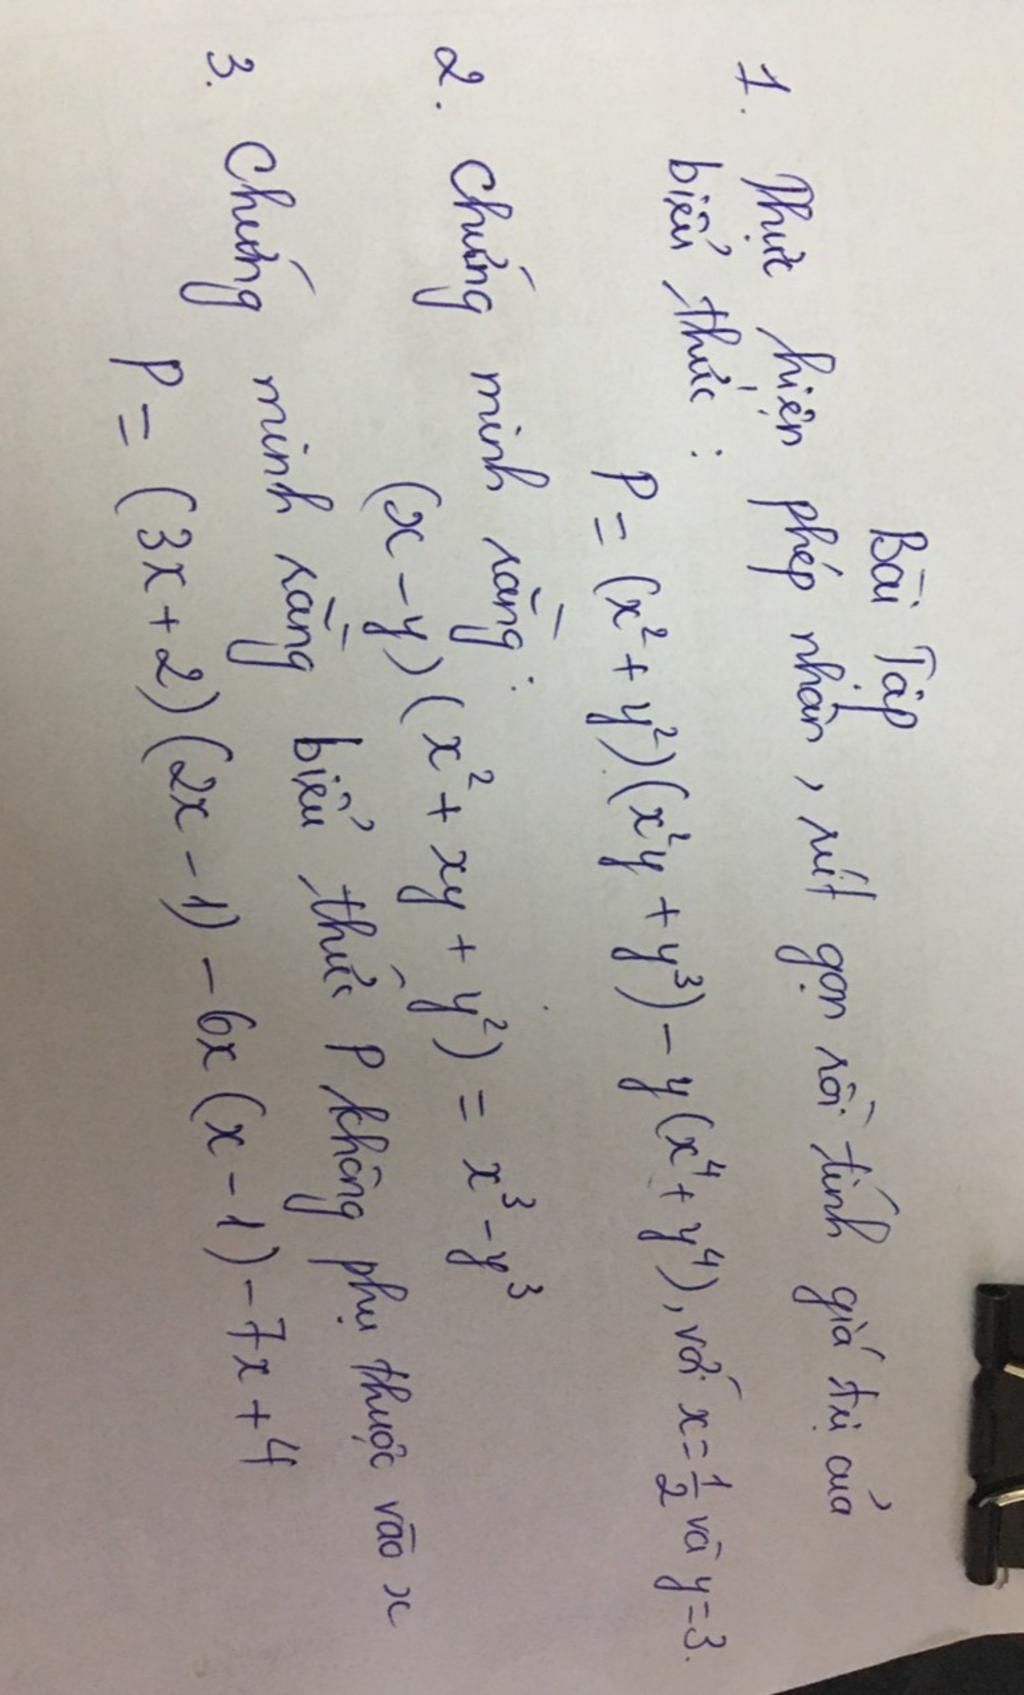 Bài Tập
1. Thực hiện phép nhân, rút gọn rồi tính giá trị của
biểu thức:
P = (x² + y²)(x²y + y³) - y(x⁴ + y⁴), với x = 1/2 và y = 3.
2. Chứng minh rằng:
(x - y)(x² + xy + y²) = x³ - y³
3. Chứng minh rằng biểu thức P không phụ thuộc vào x
P = (3x + 2)(2x - 1) - 6x(x - 1) - 7x + 4